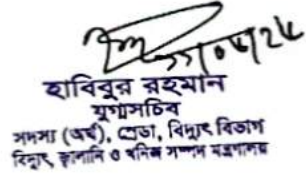 ১১/০৪/২৮
হাবিবুর রহমান
যুগ্মসচিব
সদস্য (অর্থ), স্রেডা, বিদ্যুৎ বিভাগ
বিদ্যুৎ, জ্বালানি ও খনিজ সম্পদ মন্ত্রণালয়